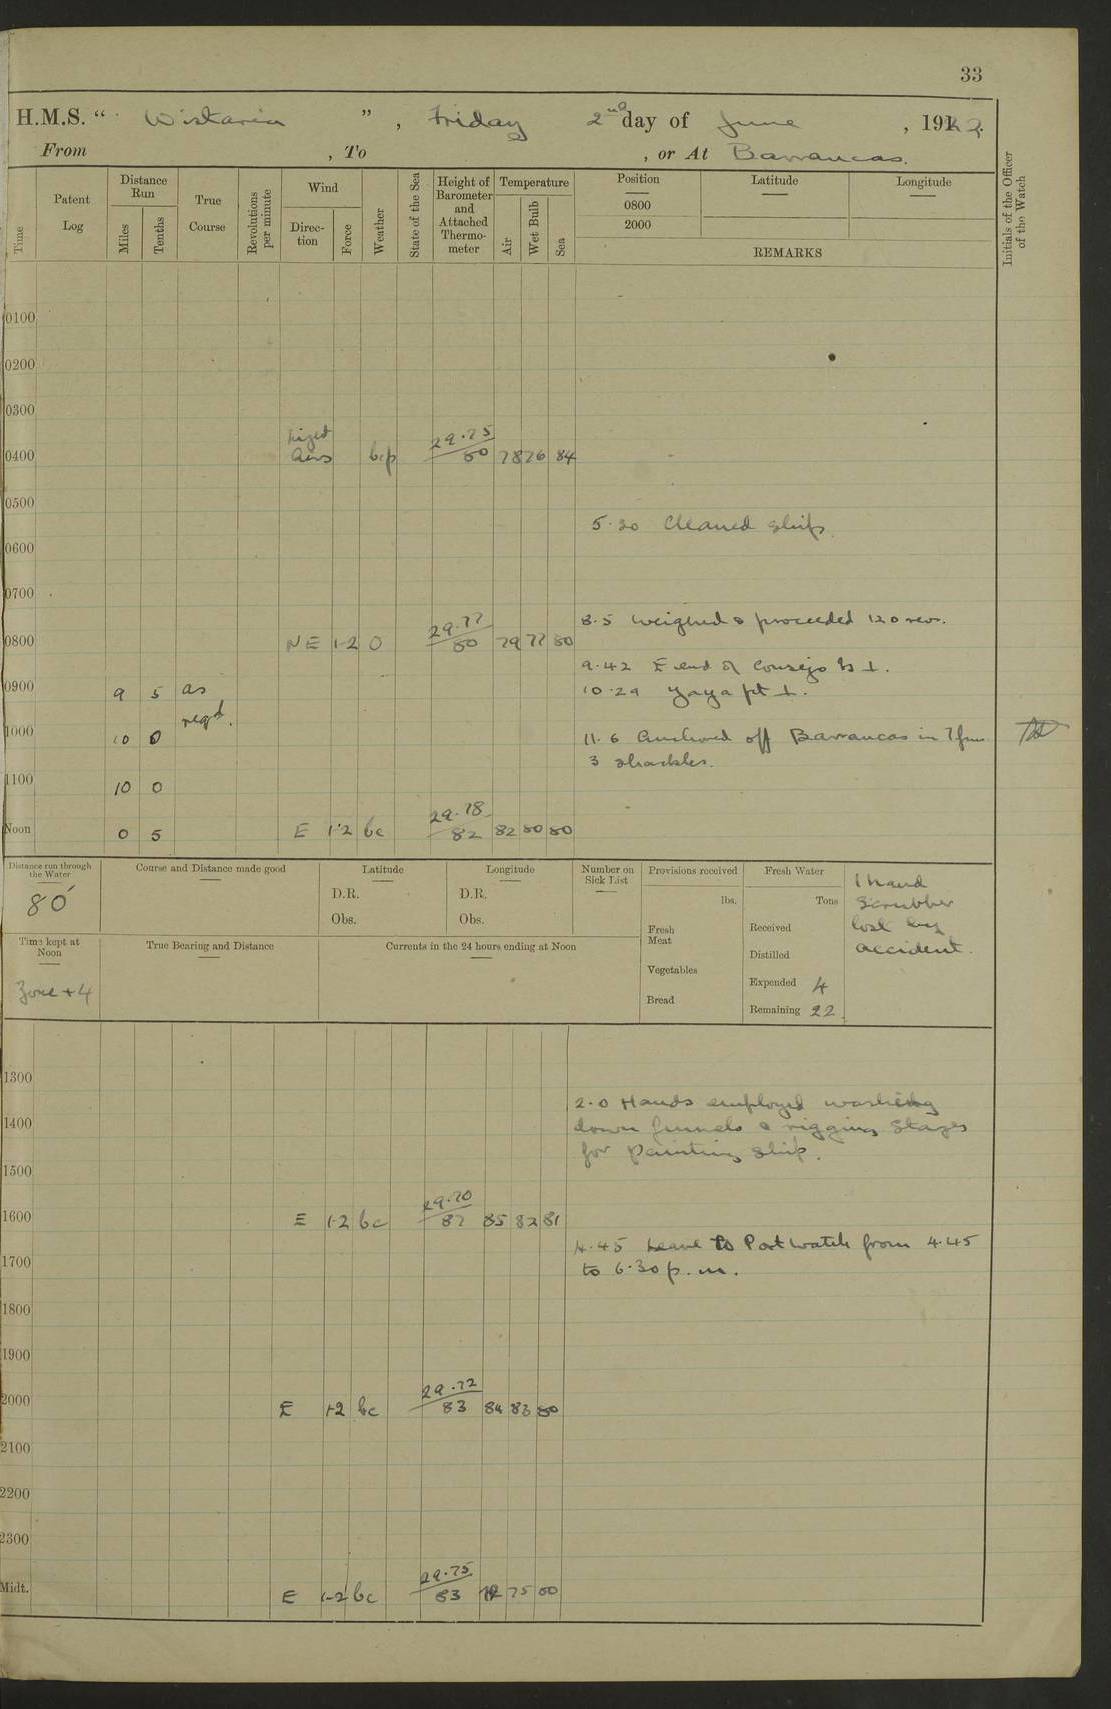 33
H.M.S. " Wistaria " , Friday 2nd day of June , 1922.
From , To , or At Barrancas.
Time Patent Log Distance Run Miles Tenths True Course Revolutions per minute Wind Direction Force Weather State of the Sea Height of Barometer and Attached Thermometer Temperature Air Wet Bulb Sea Position Latitude Longitude Initials of the Officer of the Watch
0800
2000
REMARKS
0100
0200
0300
0400 Airs bcp 29.75 80 78 76 84
0500
5.30 Cleaned ship.
0600
0700
8.5 Weighed & proceeded 120 revs.
0800 NE 1-2 O 29.77 80 79 77 80
9.42 E end of Consejo Is ⊥.
0900 9 5 as reqd.
10.29 Yaya pt ⊥.
1000 10 0
11.6 Anchored off Barrancas in 7 fms
3 shackles.
1100 10 0
Noon 0 5 E 1-2 bc 29.78 82 82 80 80
Distance run through the Water
80'
Course and Distance made good
Latitude
D.R.
Obs.
Longitude
D.R.
Obs.
Number on Sick List
Provisions received
lbs.
Fresh Meat
Vegetables
Bread
Fresh Water
Tons
Received
Distilled
Expended 4
Remaining 22.
1 hand
Scrubber
lost by
accident.
Time kept at Noon
Zone + 4
True Bearing and Distance
Currents in the 24 hours ending at Noon
1300
2.0 Hands employed washing
1400
down funnels & rigging stages
for painting ship.
1500
1600 E 1-2 bc 29.70 87 85 82 81
4.45 Leave to Port watch from 4.45
1700
to 6.30 p.m.
1800
1900
2000 E 1-2 bc 29.72 83 84 83 80
2100
2200
2300
Midt. E 1-2 bc 29.75 83 75 80